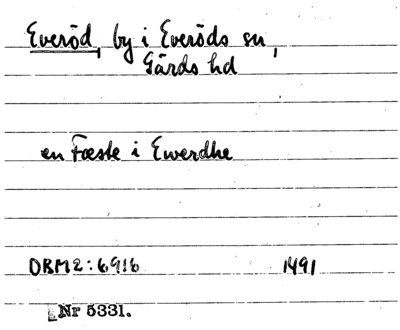 Everöd, by i Everöds sn,
Gärds hd
en Fæste i Ewerdhe
DRM2:6916 1491
Nr 5331.